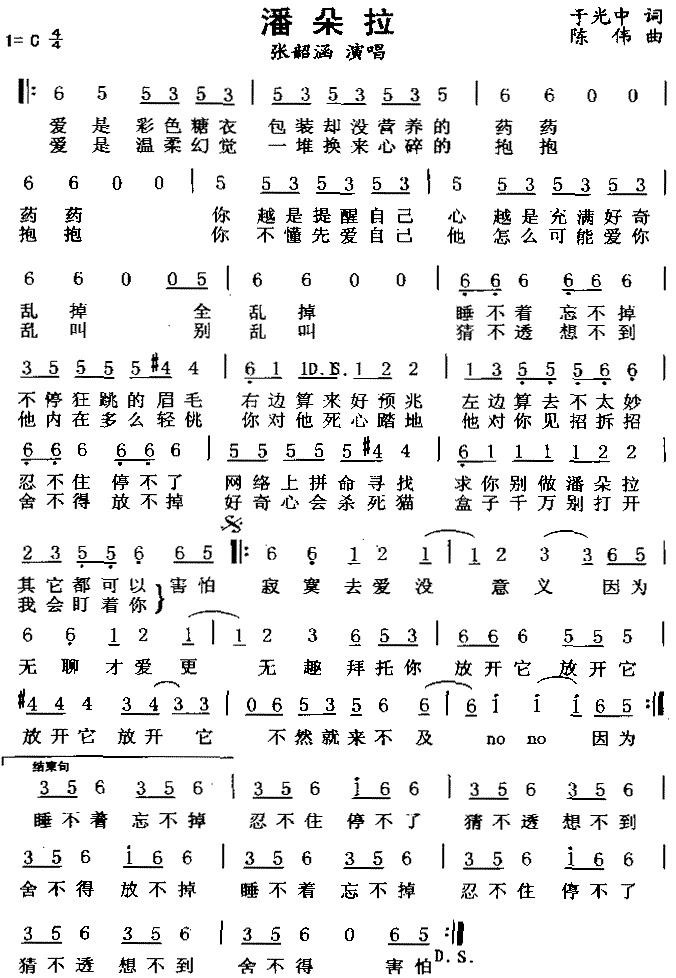 潘朵拉
于光中 词
1= C 4/4
张韶涵 演唱
陈 伟 曲
‖: 6 5 5 3 5 3 | 5 3 5 3 5 3 5 | 6 6 0 0 |
爱是 彩色糖衣 包装却没营养的 药药
爱是 温柔幻觉 一堆换来心碎的 抱抱
6 6 0 0 | 5 5 3 5 3 5 3 | 5 5 3 5 3 5 3 |
药药 你 越是提醒自己 心 越是充满好奇
抱抱 你 不懂先爱自己 他 怎么可能爱你
6 6 0 0 5 | 6 6 0 0 | 6 6 6 6 6 6 |
乱掉 全 乱掉 睡不着 忘不掉
乱叫 别 乱叫 猜不透 想不到
3 5 5 5 5 #4 4 | 6 1 1 D.S. 1 2 2 | 1 3 5 5 5 6 6 |
不停狂跳的眉毛 右边算来好预兆 左边算去不太妙
他内在多么轻佻 你对他死心踏地 他对你见招拆招
6 6 6 6 6 6 | 5 5 5 5 5 #4 4 | 6 1 1 1 1 2 2 |
忍不住 停不了 网络上拼命寻找 求你别做潘朵拉
舍不得 放不掉 好奇心会杀死猫 盒子千万别打开
2 3 5 5 6 6 5 ‖: 6 6 1 2 1 | 1 2 3 3 6 5 |
其它都可以 害怕 寂寞去爱没 意义 因为
我会盯着你
6 6 1 2 1 | 1 2 3 6 5 3 | 6 6 6 5 5 5 |
无聊才爱更 无趣拜托你 放开它 放开它
#4 4 4 3 4 3 3 | 0 6 5 3 5 6 6 | 6 i i i 6 5 :‖
放开它 放开 它 不然就来不及 no no 因为
结束句
3 5 6 3 5 6 | 3 5 6 i 6 6 | 3 5 6 3 5 6 |
睡不着 忘不掉 忍不住 停不了 猜不透 想不到
3 5 6 i 6 6 | 3 5 6 3 5 6 | 3 5 6 i 6 6 |
舍不得 放不掉 睡不着 忘不掉 忍不住 停不了
3 5 6 3 5 6 | 3 5 6 0 6 5 :‖
D.S.
猜不透 想不到 舍不得 害怕